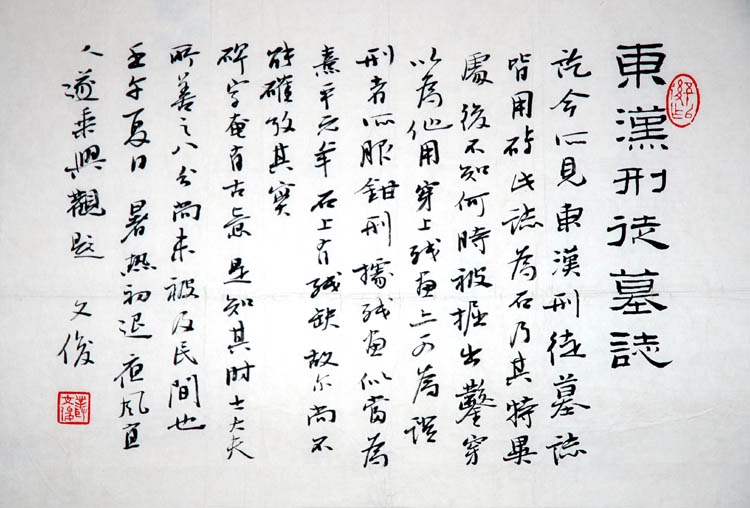 東漢刑徒墓誌
訖今所見東漢刑徒墓誌
皆用磚此誌為石乃其特異
處後不知何時被掘出鑿穿
以為他用穿上殘画上可為
刑者所服鉗刑據殘画似當為
熹平元年石上有殘缺故尔尚不
能確攷其實
碑字奄有古意是知其時士大夫
所善之八分尚未被及民間也
壬午夏日暑熱初退夜風宜
人遂乘興觀題 文俊